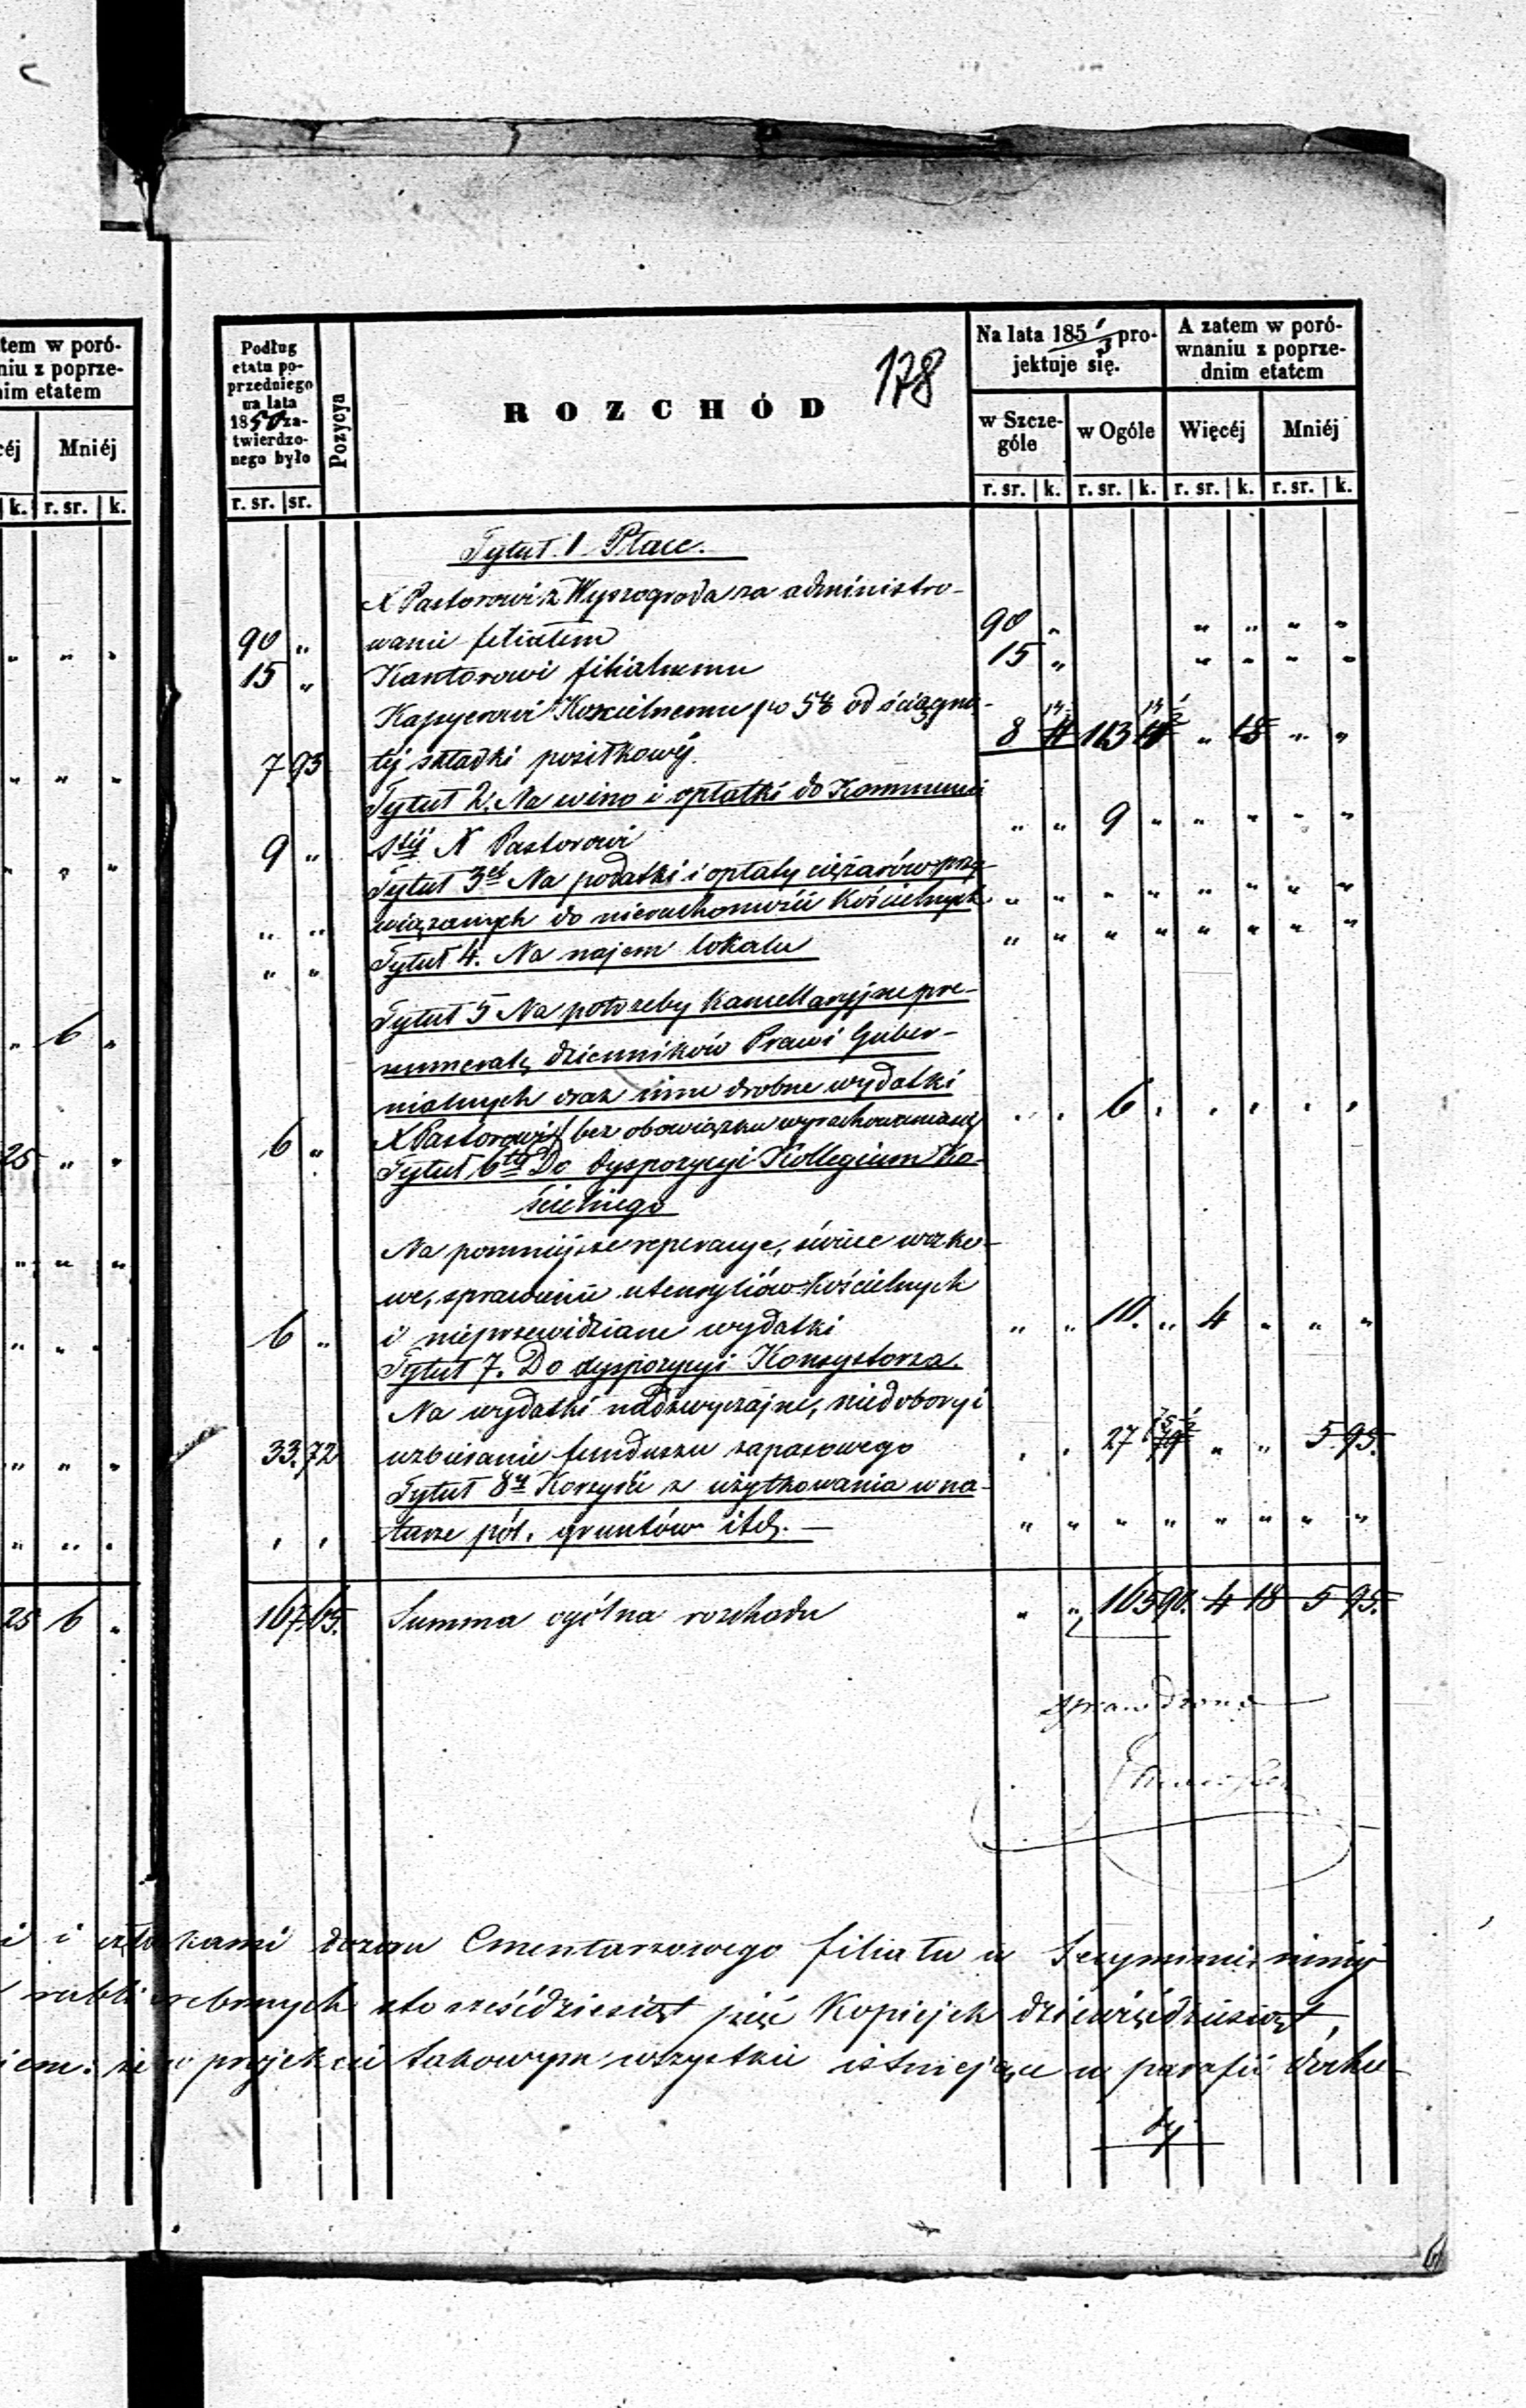 tem w poró-
niu z poprze-
nim etatem
céj Mniéj
k. r. sr. k.
„ „ „
„ „ „
„ „ „
„ 6 „
25 „ „
„ „ „
„ „ „
„ „ „
„ „ „
25 6 „
178
Podług etatu po-
przedniego
na lata
1850 za-
twierdzo-
nego było
Pozycya
ROZCHÓD
Na lata 185 1/3 pro-
jektuje się.
A zatem w poró-
wnaniu z poprze-
dnim etatem
w Szcze-
góle
w Ogóle Więcéj Mniéj
r. sr. sr. r. sr. k. r. sr. k. r. sr. k. r. sr. k.
Tytuł 1 Płace.
X Pastorowi z Wyszogroda za administro-
90 „ wanie filiałem 90 „ „ „ „ „
15 „ Kantorowi filialnemu 15 „ „ „ „ „
Kassyerowi Kościelnemu po 5% od ściągnię-
7 93 téj składki posiłkowéj. 8 113 „ 18 „ „
Tytuł 2. Na wino i opłatki do Kommunii
9 „ Stéj X Pastorowi „ „ 9 „ „ „ „ „
Tytuł 3ci Na podatki i opłaty ciężarów przy-
„ „ wiązanych do nieruchomości Kościelnych „ „ „ „ „ „ „ „
„ „ Tytuł 4. Na najem lokalu „ „ „ „ „ „ „ „
Tytuł 5 Na potrzeby kancellaryjne pre-
numeratę dzienników Praw i Guber-
nialnych oraz inne drobne wydatki
6 „ X Pastorowi bez obowiązku wyrachowania się „ „ 6 „ „ „ „ „
Tytuł 6ty Do dyspozycyi Kollegium Ko-
ścielnego
Na pomniejsze reperacye, świece wosko-
we, sprawienie utensyliów Kościelnych
6 „ i nieprzewidziane wydatki „ „ 10. „ 4 „ „ „
Tytuł 7. Do dyspozycyi Konsystorza.
Na wydatki nadzwyczajne, niedobory i
33. 72 uzbieranie funduszu zapasowego „ „ 27 „ „ 5 95.
Tytuł 8y Korzyści z użytkowania w na-
„ „ turze pól, gruntów itd. — „ „ „ „ „ „ „ „
167. 65. Summa ogólna rozchodu „ „ 165 90. 4 18 5 95.
Sprawdzono
i i członkami dozoru Cmentarzowego filiału w Secyminie niniej
rubli srebrnych sto sześćdziesiąt pięć Kopiejek dziewięćdziesiąt,
iem: że w projekcie takowym wszystkie istniejące w parafii docho-
dy.